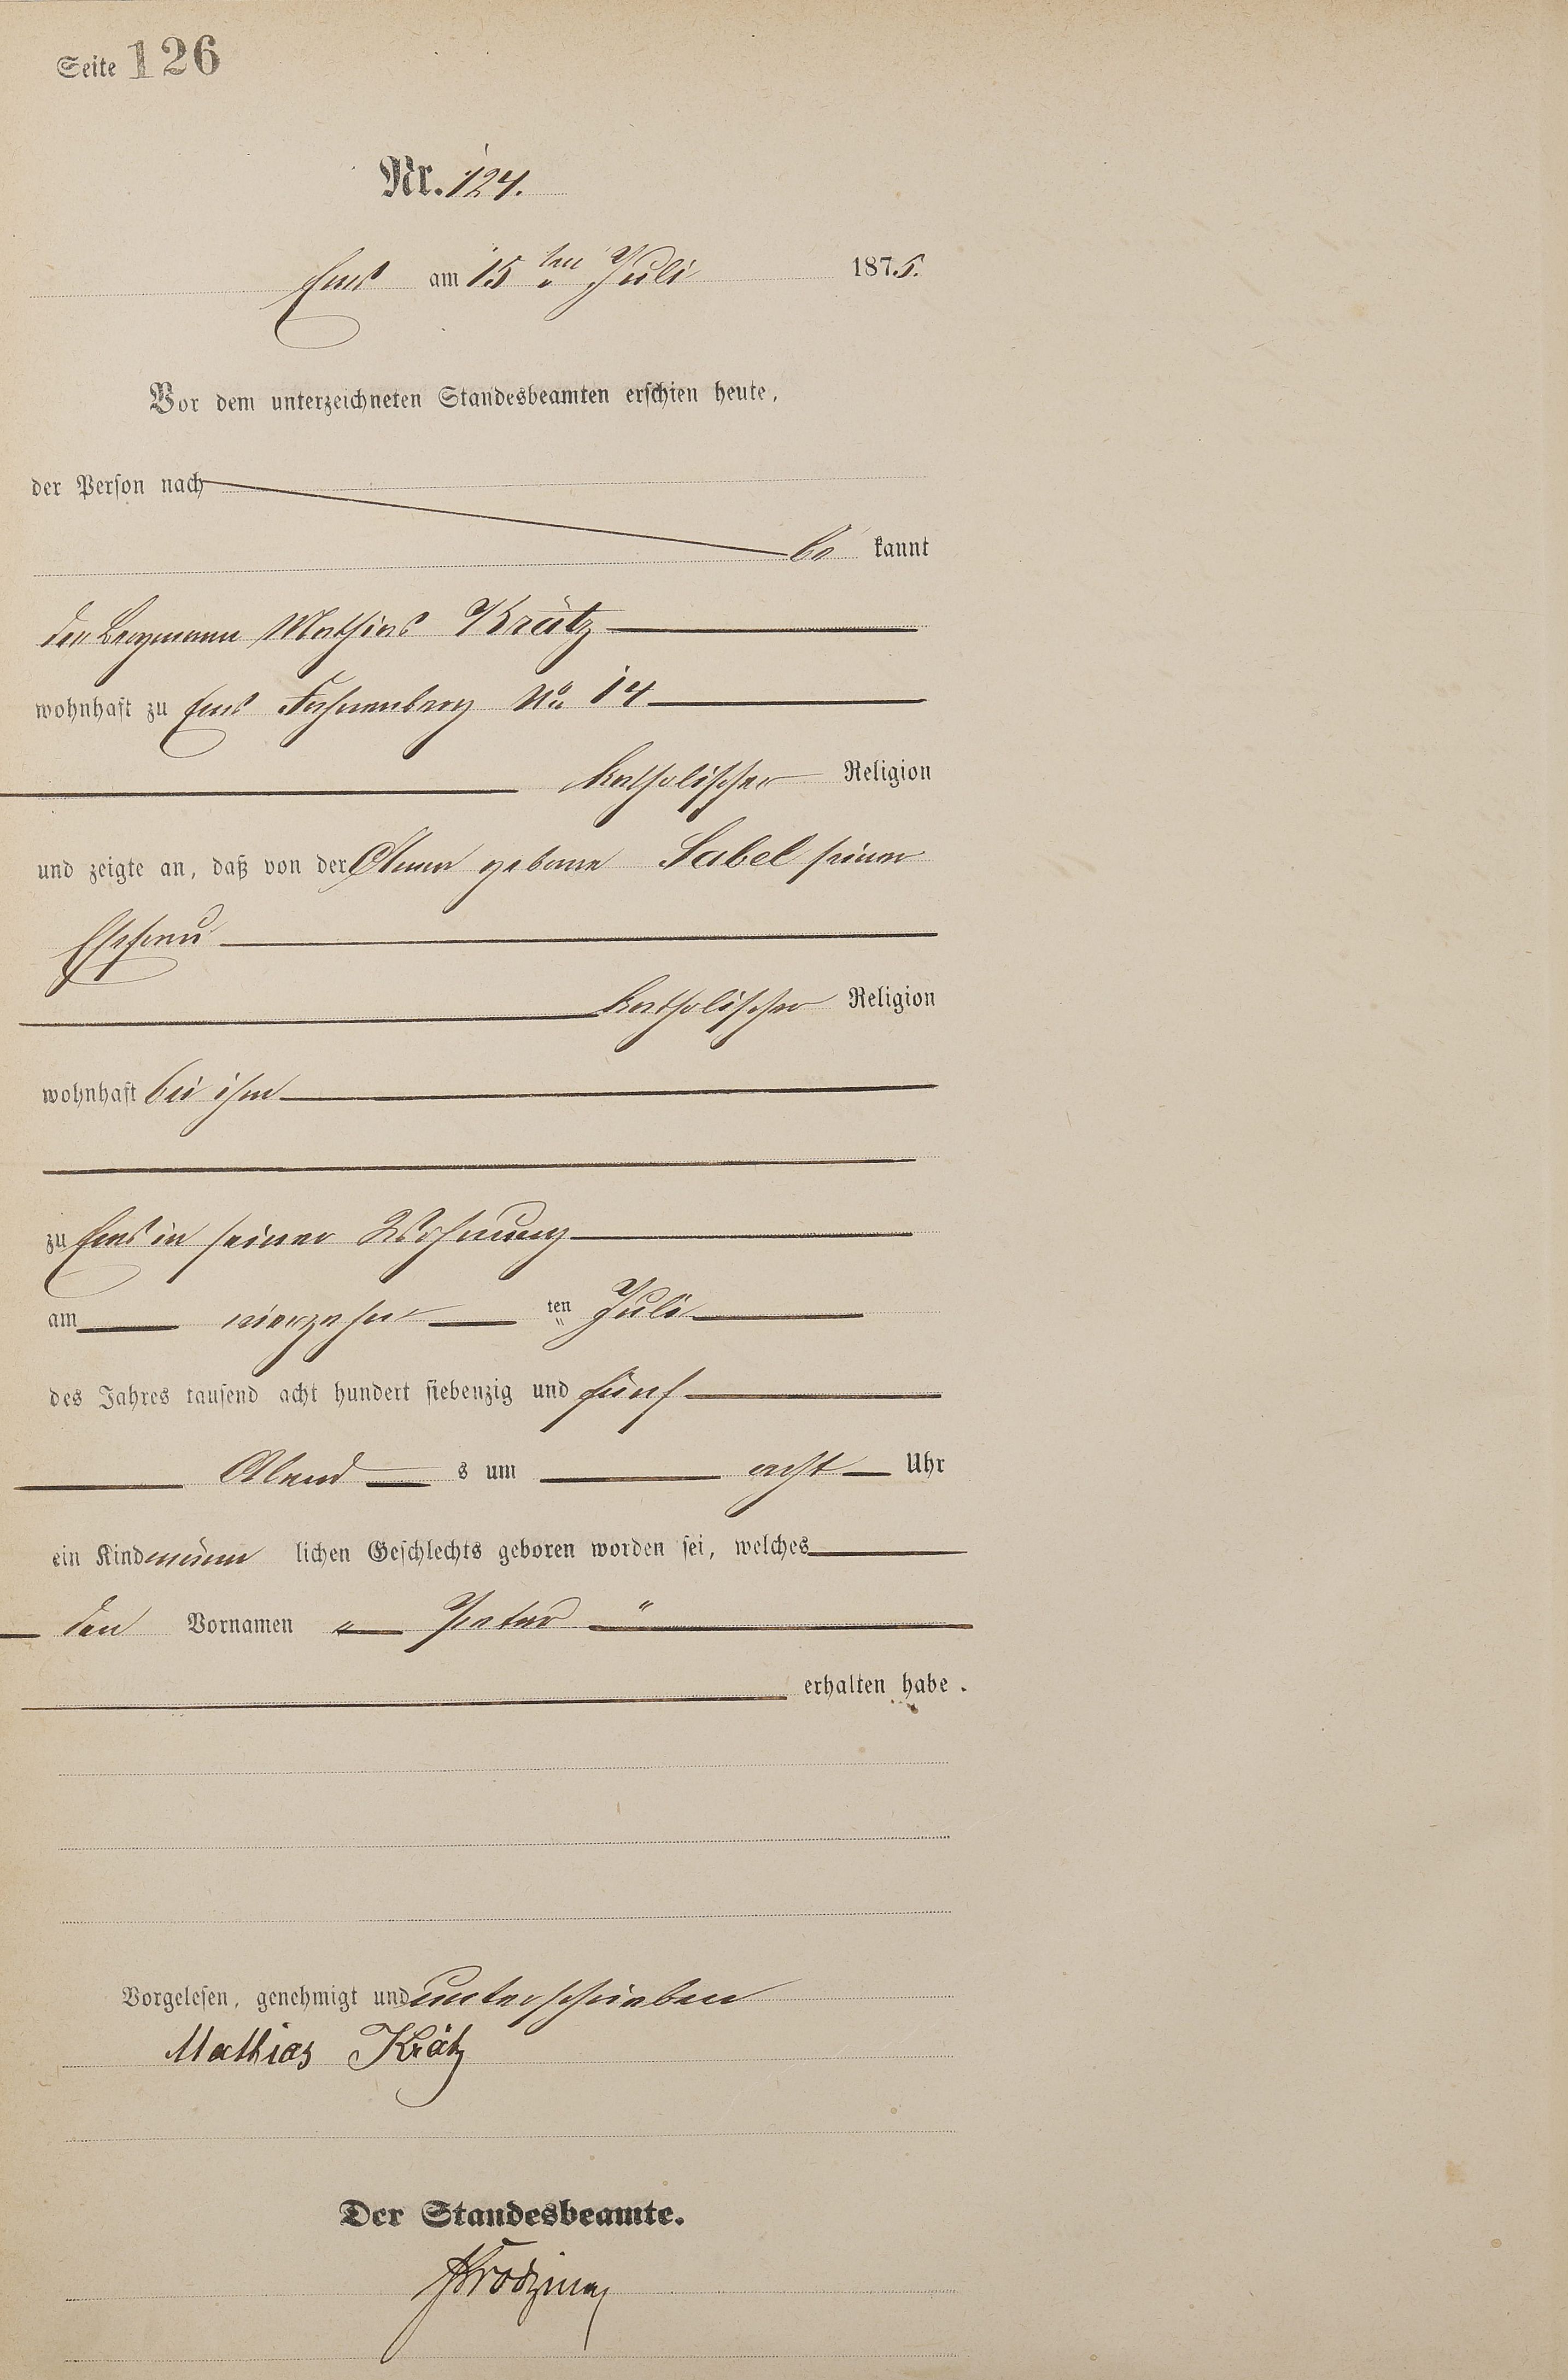 Seite 126
Nr. 124.
Ems am 15ten Juli 1875.
Vor dem unterzeichneten Standesbeamten erschien heute,
der Person nach
be kannt
der Bergmann Mathias Krätz
wohnhaft zu Ems No 14
katholischer Religion
und zeigte an, daß von der Anna geborne Sabel seiner
Ehefrau
katholischer Religion
wohnhaft bei ihm
zu Ems in seiner Wohnung
am vierzehn ten Juli
des Jahres tausend acht hundert siebenzig und fünf
Abend s um acht Uhr
ein Kind männ lichen Geschlechts geboren worden sei, welches
den Vornamen " Peter "
erhalten habe.
Vorgelesen, genehmigt und unterschrieben
Mathias Krätz
Der Standesbeamte.